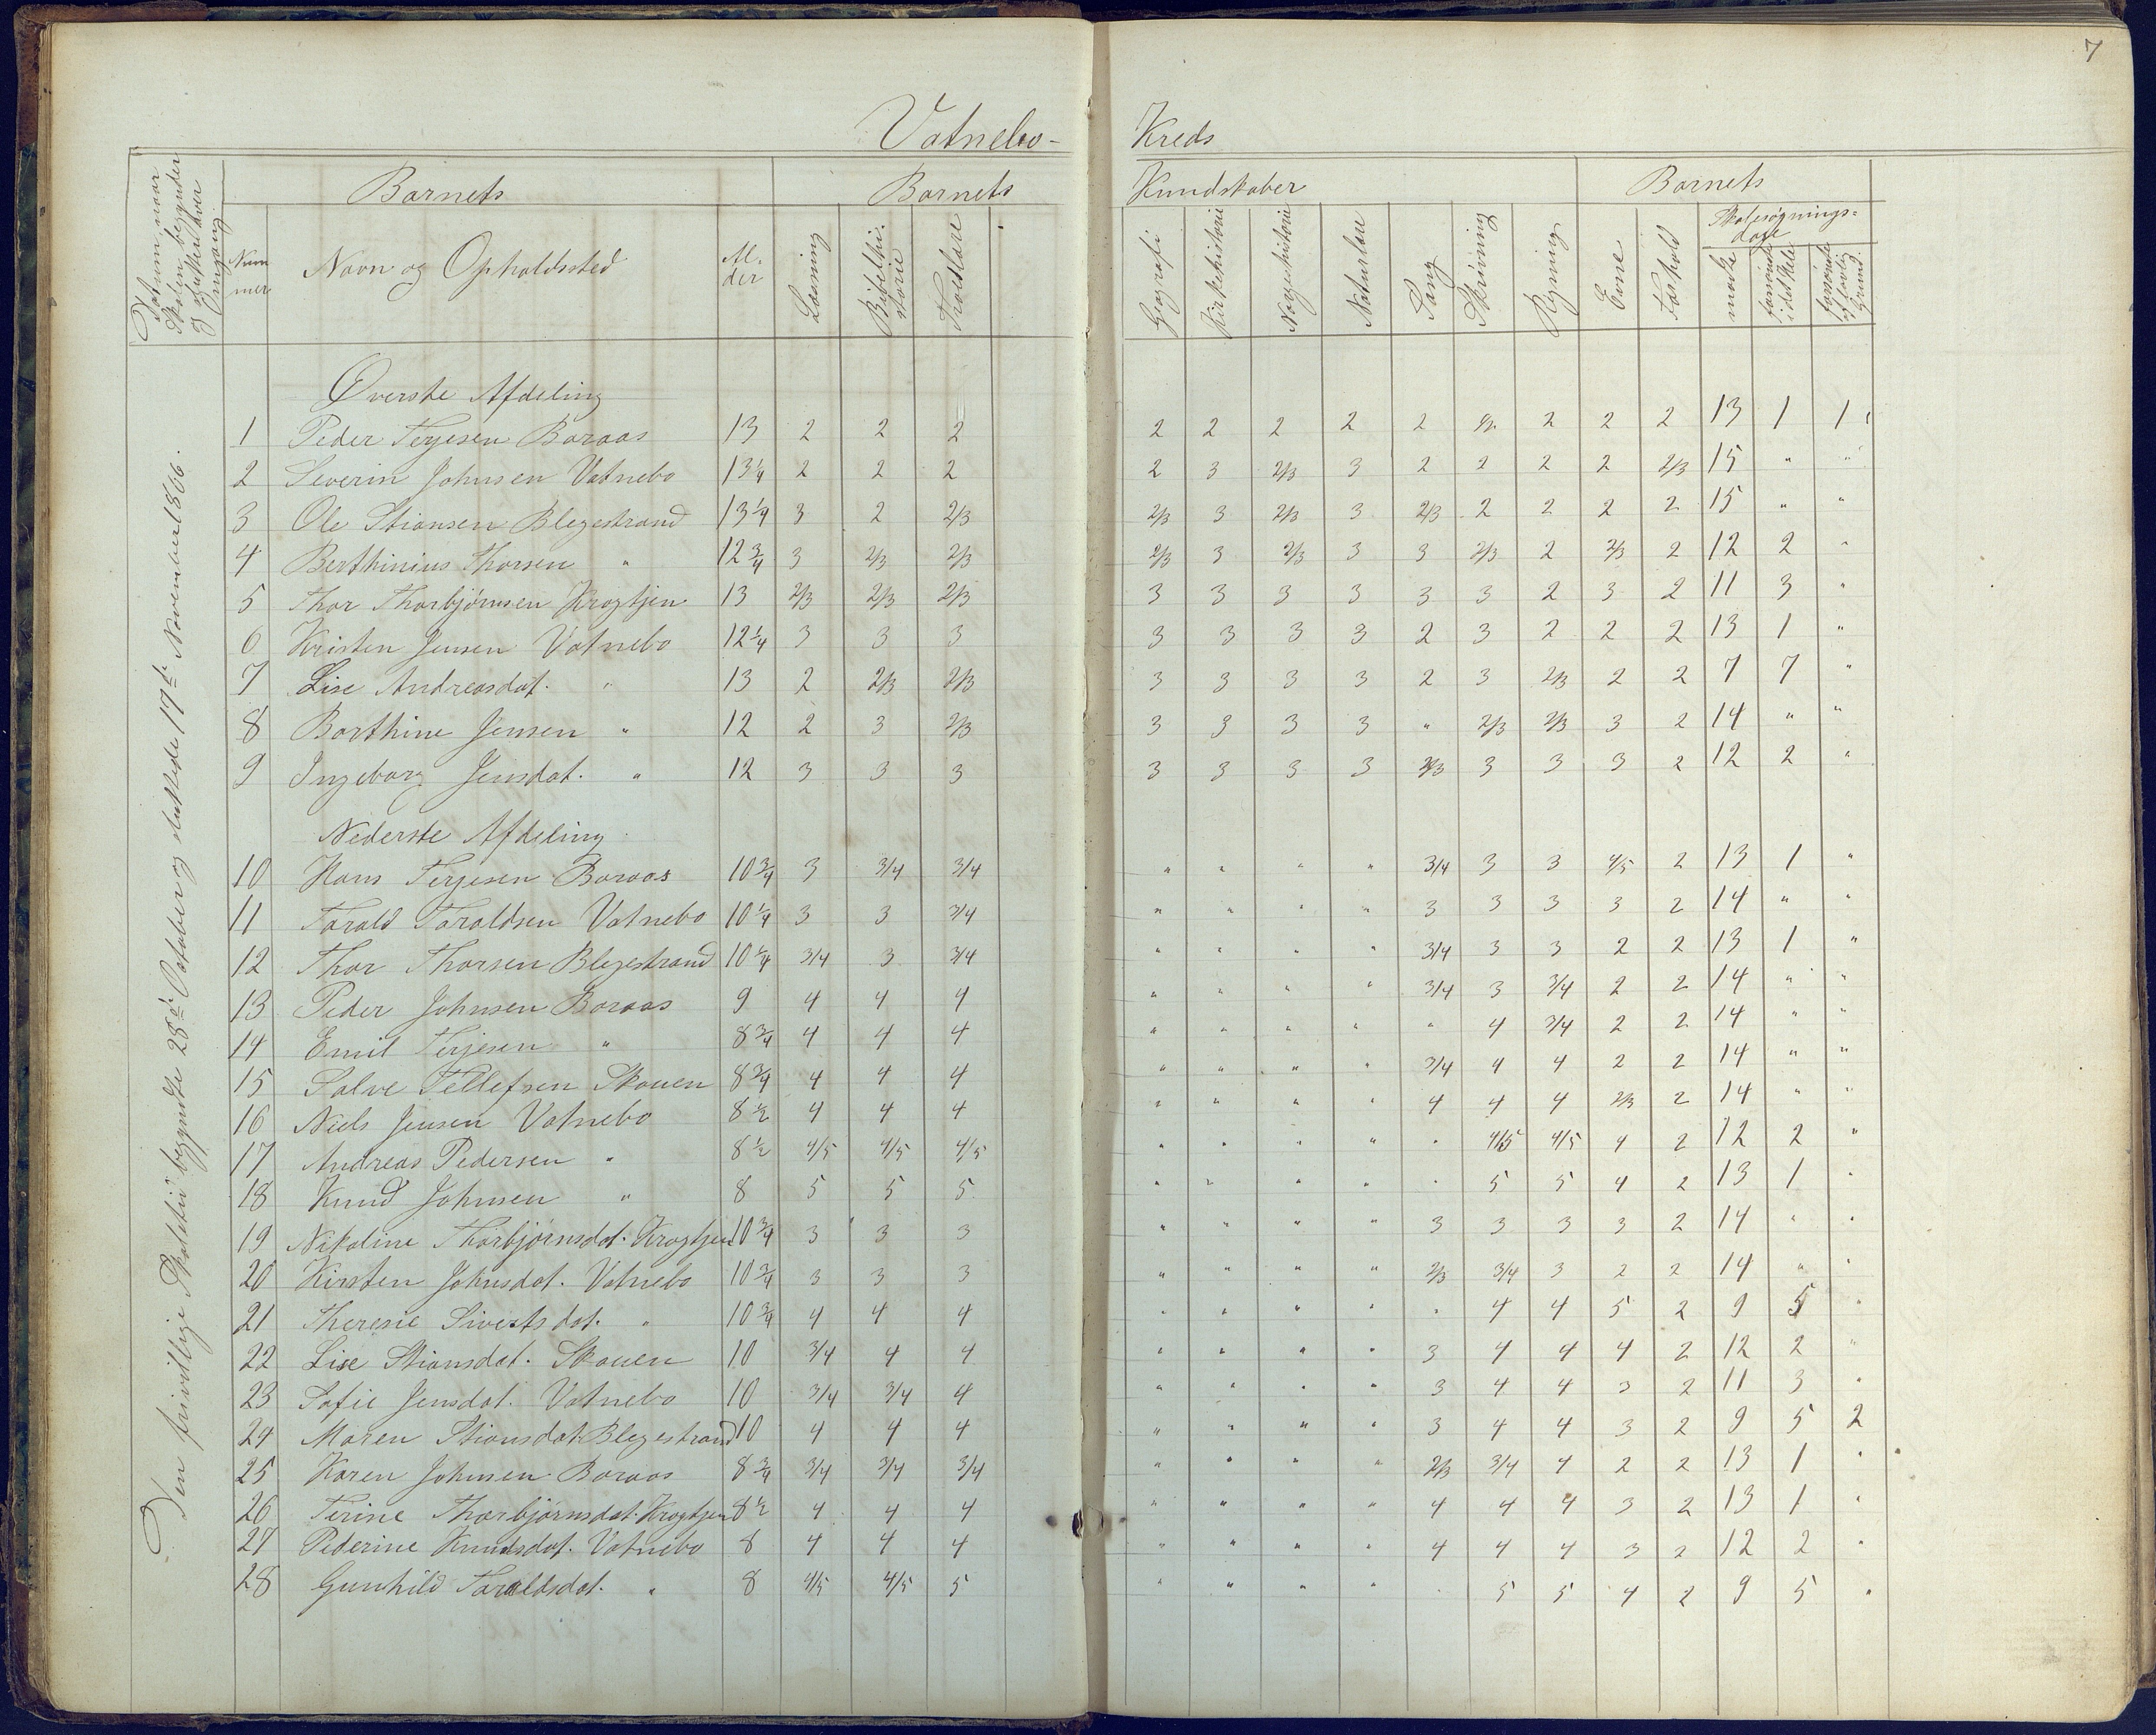 7
Vatnebo- Kreds
Datum, naar Skolen begynder og slutter hver Omgang
Barnets
Barnets Kundskaber
Barnets
Num mer
Navn og Opholdssted
Al. der
Læsning
Bibelhi. storie
Troeslære
Geografi
Kirkehistorie
Norgeshistorie
Naturlære
Sang
Skrivning
Regning
Evne
Forhold
Skolesøgnings= dage
mødte
forsømte i det Hele
forsømte af lovlig Grund.
Den frivillige Skoletid begyndte 28de Oktober og sluttede 17de November 1866.
Øverste Afdeling
1 Peder Terjesen Boraas 13 2 2 2 2 2 2 2 2 2 2 2 2 13 1 1
2 Severin Johnsen Vatnebo 13 1/4 2 2 2 2 3 2/3 3 2 2 2 2 2/3 15 " "
3 Ole Stiansen Blegestrand 13 1/4 3 2 2/3 2/3 3 2/3 3 2/3 2 2 2 2 15 " "
4 Berthinius Thorsen " 12 3/4 3 2/3 2/3 2/3 3 2/3 3 3 2/3 2 2/3 2 12 2 "
5 Thor Thorbjørnsen Krogtjen 13 2/3 2/3 2/3 3 3 3 3 3 3 2 3 2 11 3 "
6 Kristen Jensen Vatnebo 12 1/4 3 3 3 3 3 3 3 2 3 2 2 2 13 1 "
7 Lise Andreasdat. " 13 2 2/3 2/3 3 3 3 3 2 3 2/3 2 2 7 7 "
8 Borthine Jensen " 12 2 3 2/3 3 3 3 3 " 2/3 2/3 3 2 14 " "
9 Ingeborg Jensdat. " 12 3 3 3 3 3 3 3 2/3 3 3 3 2 12 2 "
Nederste Afdeling
10 Hans Terjesen Boraas 10 3/4 3 3/4 3/4 " " " " 3/4 3 3 4/5 2 13 1 "
11 Torald Toraldsen Vatnebo 10 1/4 3 3 3/4 " " " " 3 3 3 3 2 14 " "
12 Thor Thorsen Blegestrand 10 1/4 3/4 3 3/4 " " " " 3/4 3 3 2 2 13 1 "
13 Peder Johnsen Boraas 9 4 4 4 " " " " 3/4 3 3/4 2 2 14 " "
14 Emil Terjesen " 8 3/4 4 4 4 " " " " " 4 3/4 2 2 14 " "
15 Salve Tellefsen Skouen 8 3/4 4 4 4 " " " " 3/4 4 4 2 2 14 " "
16 Niels Jensen Vatnebo 8 1/2 4 4 4 " " " " 4 4 4 2/3 2 14 " "
17 Andreas Pedersen " 8 1/2 4/5 4/5 4/5 " " " " " 4/5 4/5 4 2 12 2 "
18 Knud Johnsen " 8 5 5 5 " " " " " 5 5 4 2 13 1 "
19 Nikoline Thorbjørnsdat. Krogtjen 10 3/4 3 3 3 " " " " 3 3 3 3 2 14 " "
20 Kirsten Johnsdat. Vatnebo 10 3/4 3 3 3 " " " " 2/3 3/4 3 2 2 14 " "
21 Theresie Sivertsdat. " 10 3/4 4 4 4 " " " " " 4 4 5 2 9 5 "
22 Lise Stiansdat. Skouen 10 3/4 4 4 " " " " 3 4 4 4 2 12 2 "
23 Sofie Jensdat. Vatnebo 10 3/4 3/4 4 " " " " 3 4 4 3 2 11 3 "
24 Maren Stiansdat. Blegestrand 10 4 4 4 " " " " 3 4 4 3 2 9 5 2
25 Karen Johnsen Boraas 8 3/4 3/4 3/4 3/4 " " " " 2/3 3/4 4 2 2 13 1 "
26 Terine Thorbjørnsdat. Krogtjen 8 1/2 4 4 4 " " " " 4 4 4 3 2 13 1 "
27 Pederine Knudsdat. Vatnebo 8 4 4 4 " " " " 4 4 4 3 2 12 2 "
28 Gunhild Toraldsdat. " 8 4/5 4/5 5 " " " " " 5 5 4 2 9 5 "